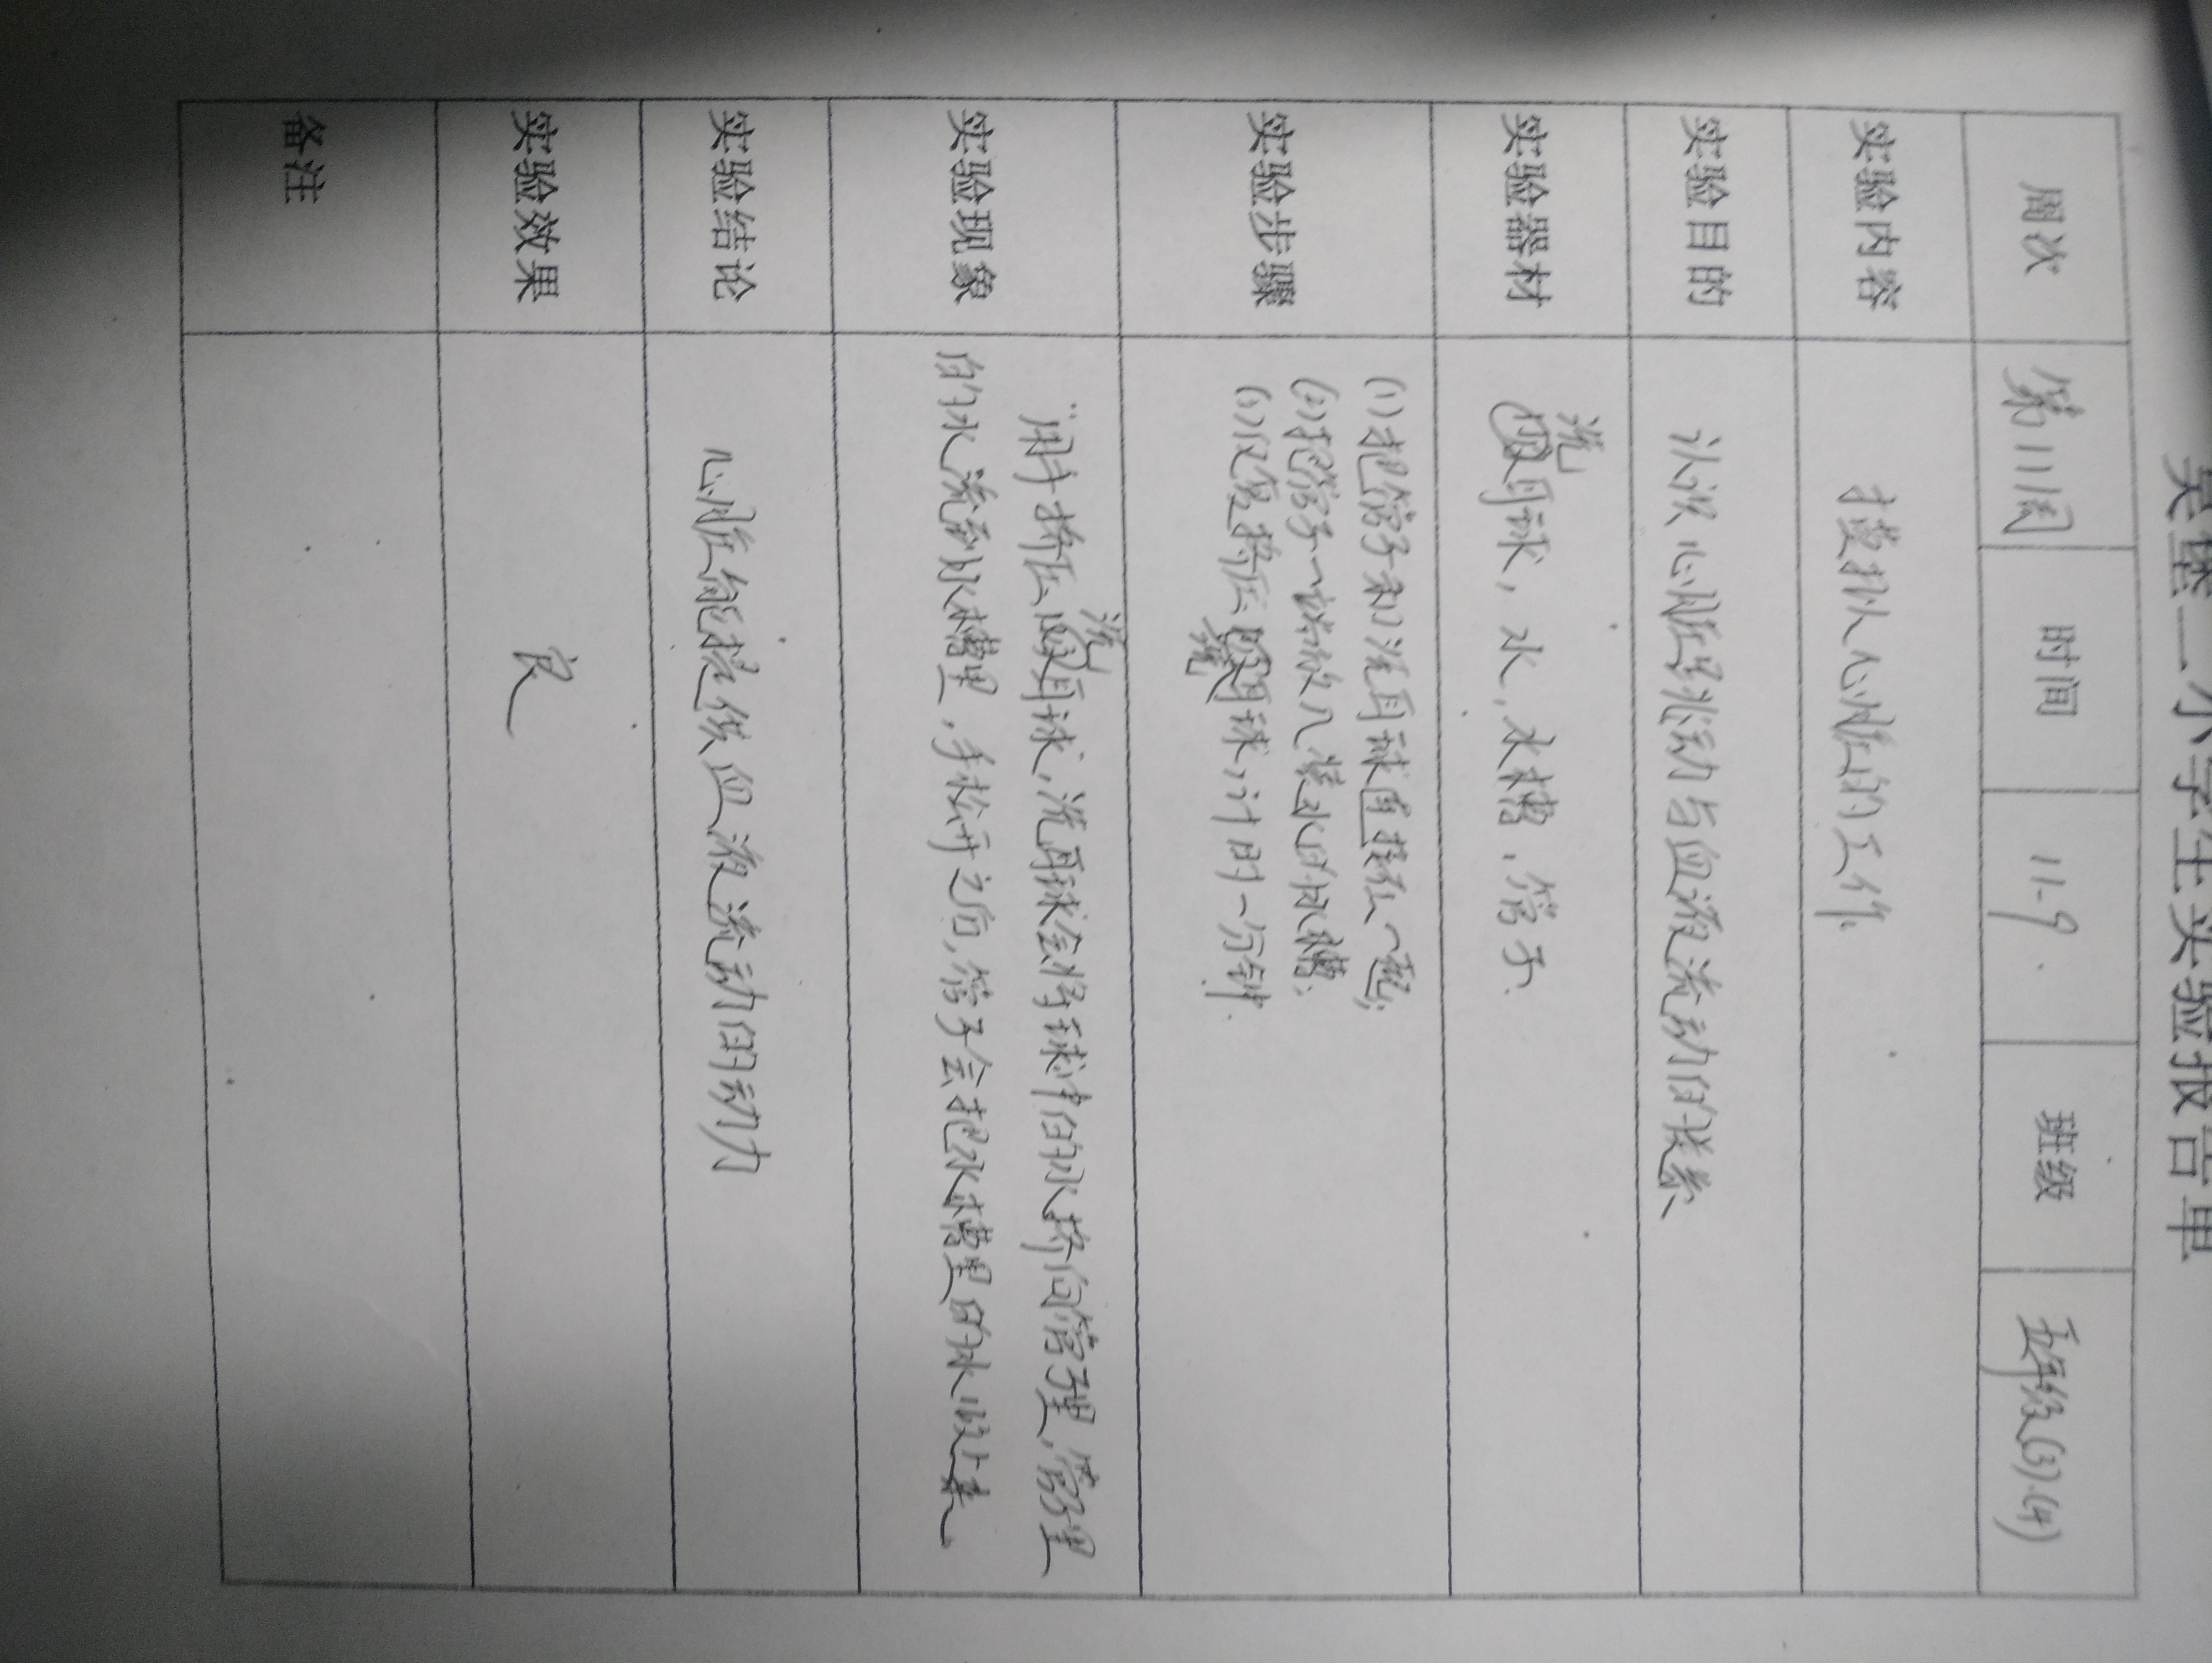 吴堡二小学生实验报告单
周次 第11周 时间 11-9. 班级 五年级(3).(4)
实验内容 模拟心脏的工作
实验目的 认识心脏跳动与血液流动的联系
实验器材 洗耳球,水,水槽,管子.
实验步骤 (1)把管子和洗耳球连接在一起;
(2)把管子一端放入装水的水槽;
(3)反复挤压洗耳球,计时一分钟.
实验现象 用手挤压洗耳球,洗耳球会将球中的水挤向管子里,管子里
的水流到水槽里,手松开之后,管子会把水槽里的水吸上来。
实验结论 心脏能提供血液流动的动力
实验效果 良
备注